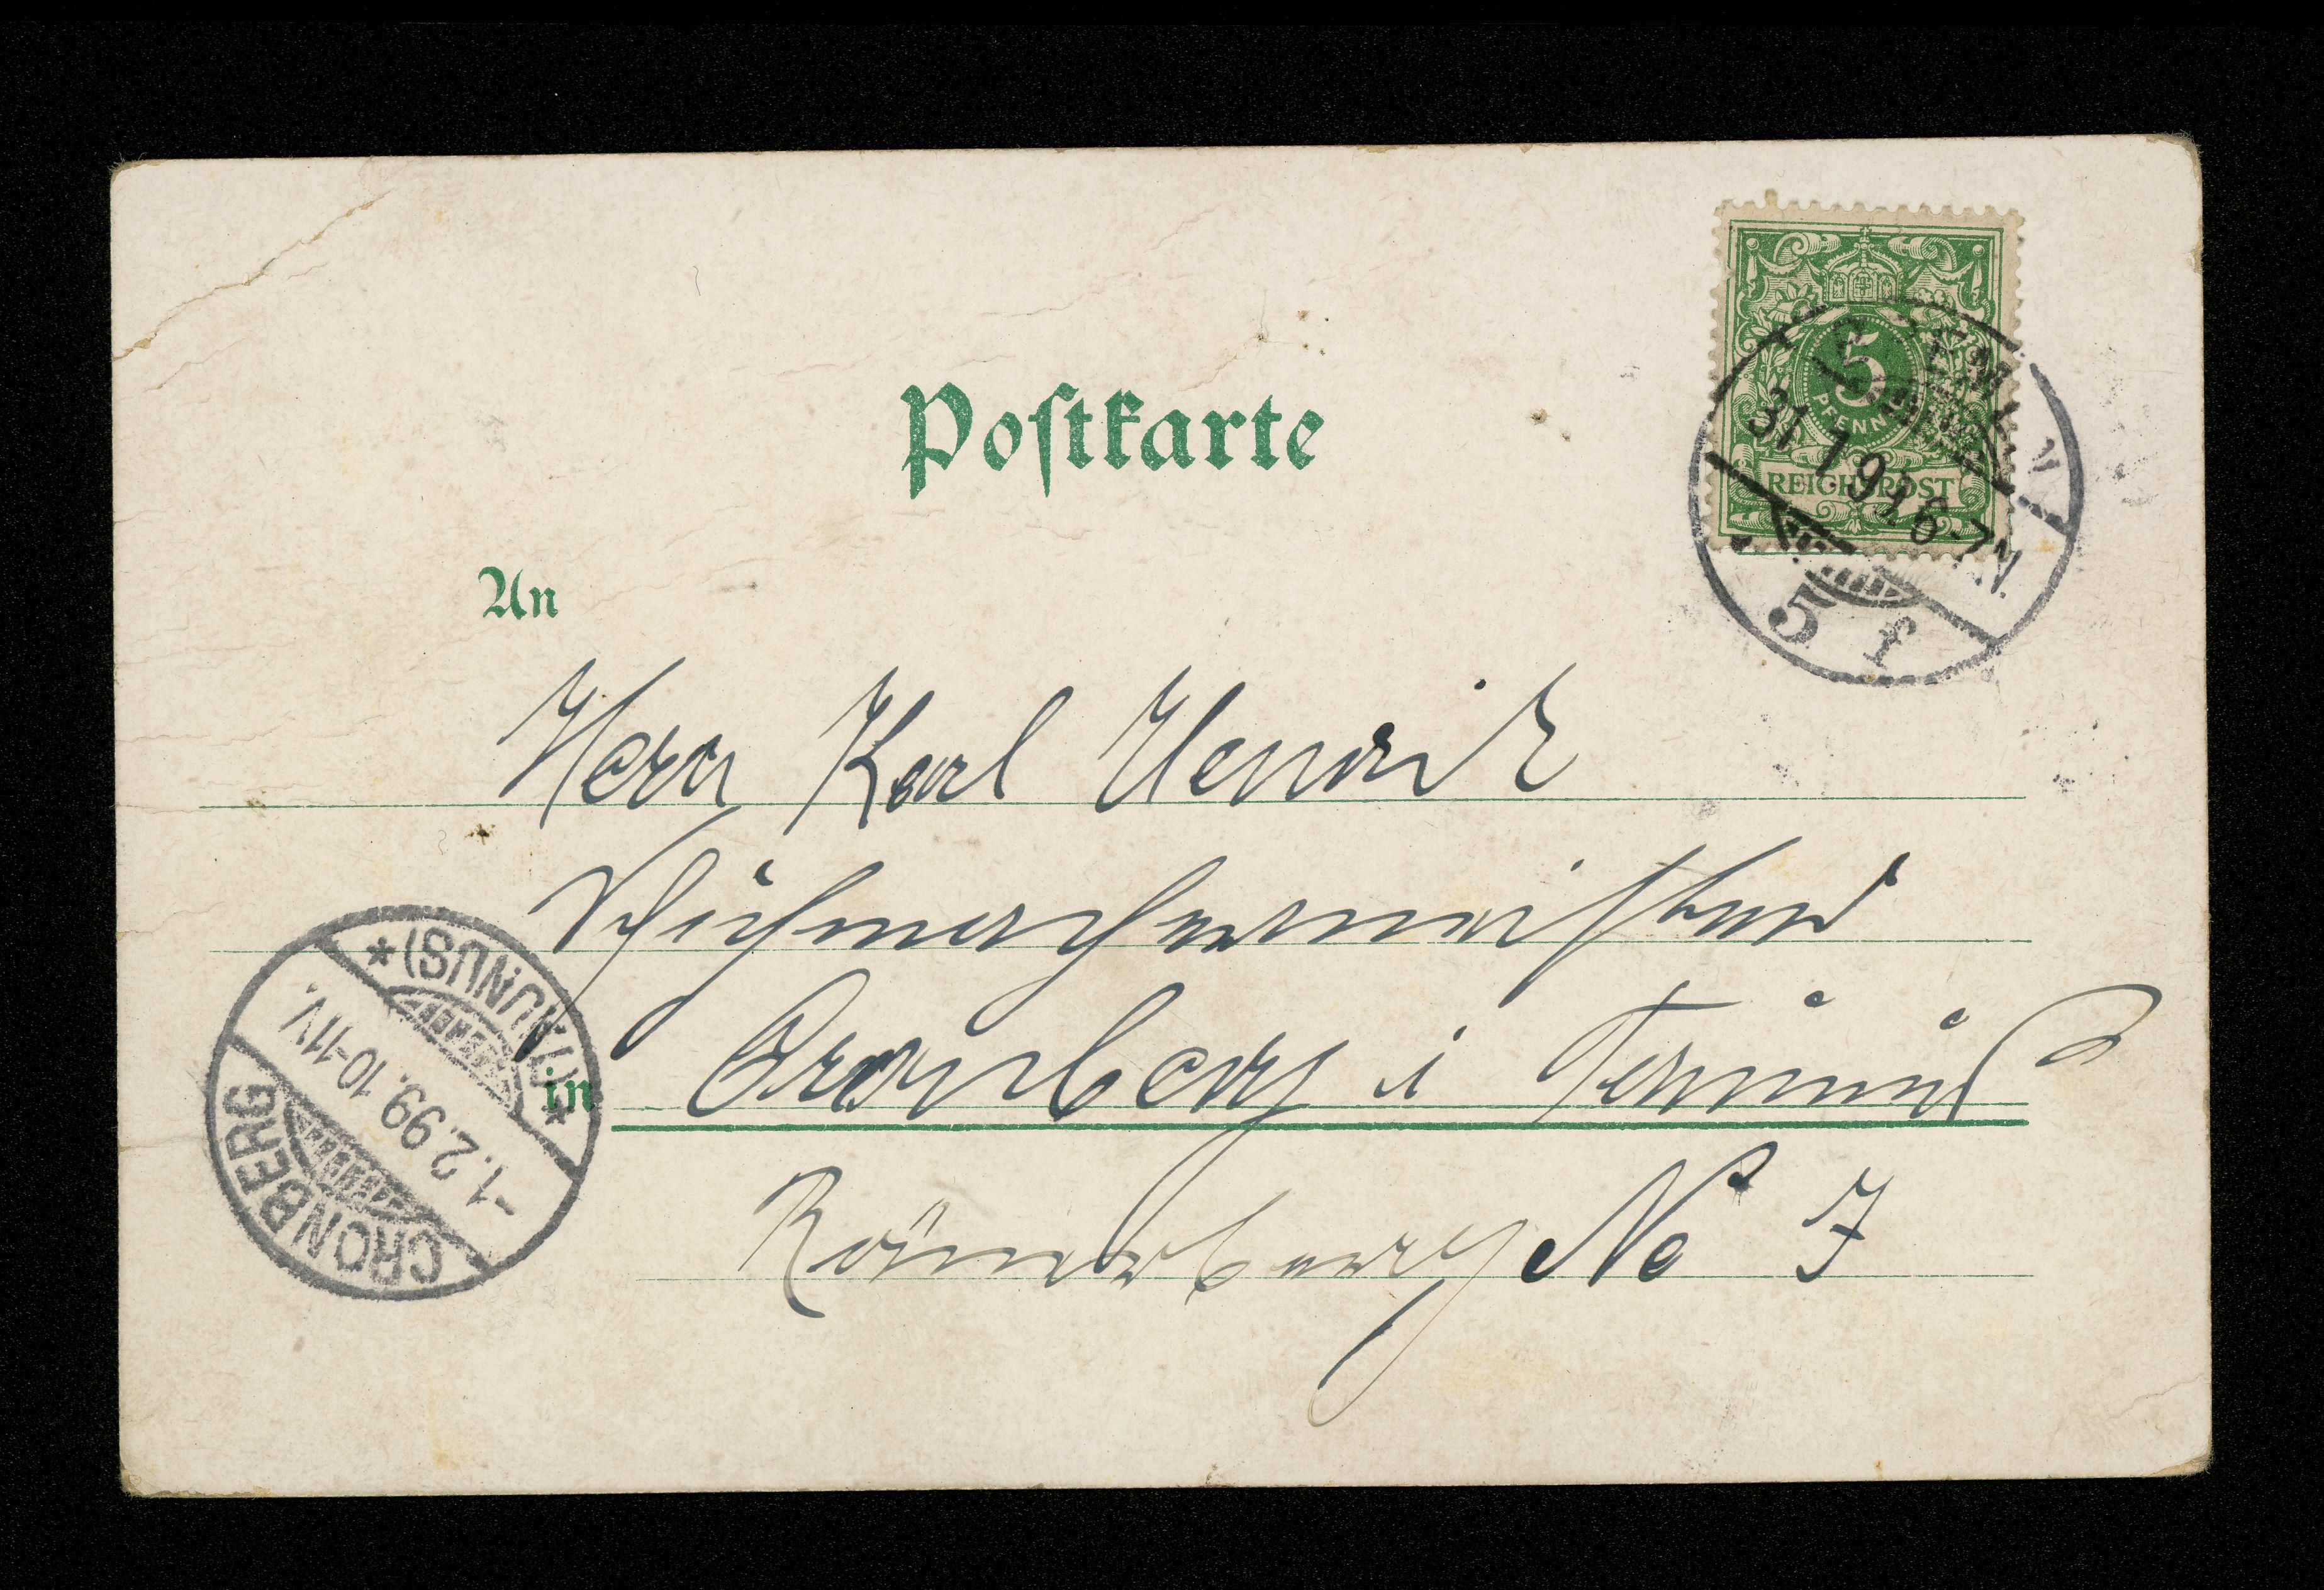 Postkarte
5
PFENNIG
REICHSPOST
31 1 99 6-7N.
5 f
An
Herrn Karl Henrik
Schuhmachermeister
in Cronberg i Taunus
Römerberg No 7
CRONBERG
-1.2.99.10-11V.
*(TAUNUS)*